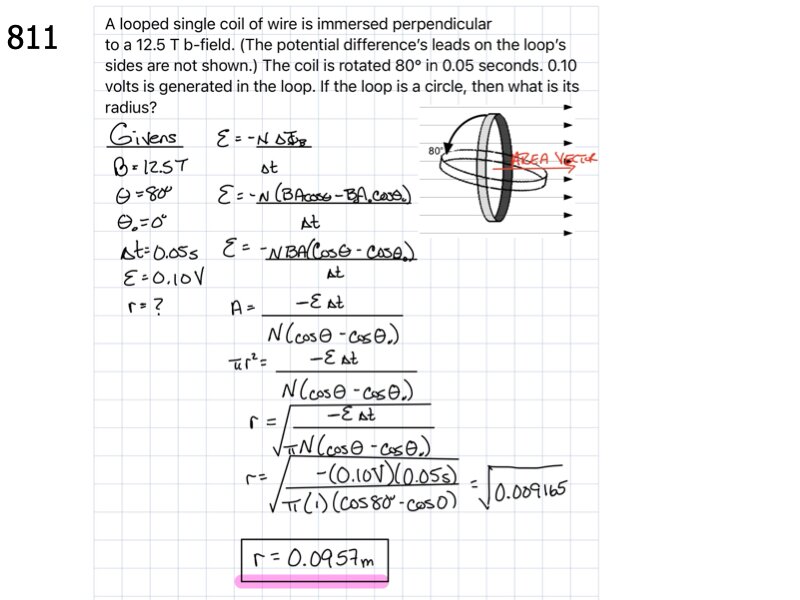 811
A looped single coil of wire is immersed perpendicular
to a 12.5 T b-field. (The potential difference's leads on the loop's
sides are not shown.) The coil is rotated 80° in 0.05 seconds. 0.10
volts is generated in the loop. If the loop is a circle, then what is its
radius?
80°
AREA VECTOR
Givens
B = 12.5T
θ = 80°
θ₀ = 0°
Δt = 0.05s
ℰ = 0.10V
r = ?
ℰ = -N ΔΦB / Δt
ℰ = -N (BAcosθ - BA₀cosθ₀) / Δt
ℰ = -NBA(Cosθ - Cosθ₀) / Δt
A = -ℰ Δt / N(cosθ - cosθ₀)
πr² = -ℰ Δt / N(cosθ - cosθ₀)
r = √(-ℰ Δt / πN(cosθ - cosθ₀))
r = √(-(0.10V)(0.05s) / π(1)(cos80° - cos0)) = √0.009165
r = 0.0957m